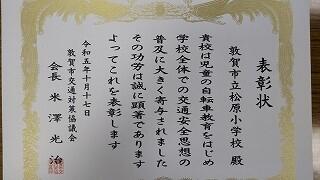 表彰状
敦賀市立松原小学校 殿
貴校は児童の自転車教育をはじめ
学校全体での交通安全思想の
普及に大きく寄与されました
その功労は誠に顕著であります
よってこれを表彰します
令和五年十月十七日
敦賀市交通対策協議会
会長 米澤光治